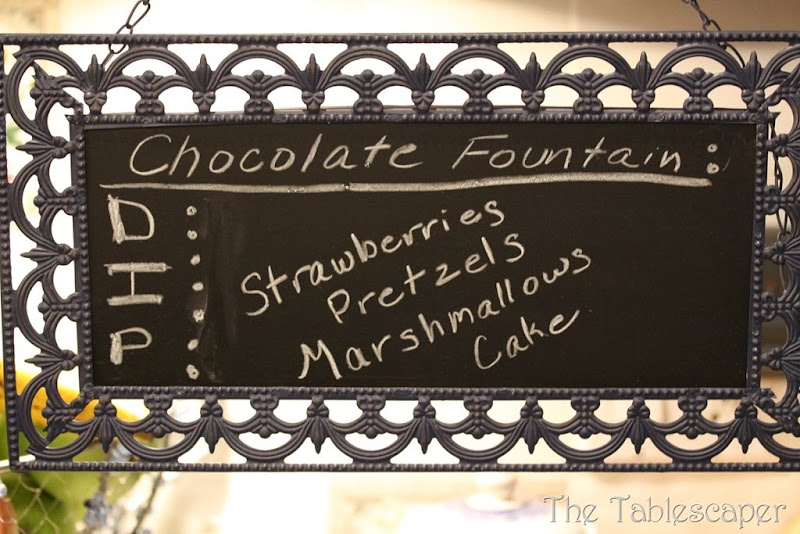 Chocolate Fountain:
DIP
Strawberries
Pretzels
Marshmallows
Cake
The Tablescaper